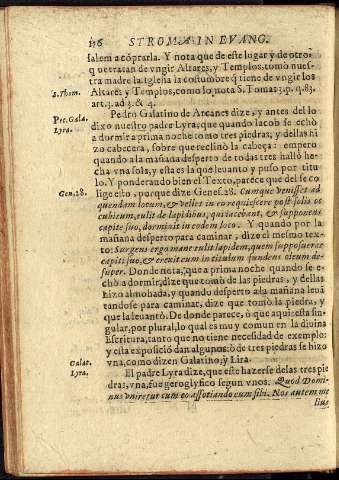 156 STROMA: IN EVANG.
salem a cōprarla. Y nota que de este lugar y de otros
q̃ue tratan de vngir Altares, y Templos, tomò nues-
tra madre la Iglesia la costumbre q̃ tiene de vngir los
S. Thom. Altares y Templos, como lo nota S. Tomas 3. p. q. 83.
art. 3. ad 3. & 4.
Pet. Gala. Pedro Galatino de Arcanes dize, y antes del lo
Lyra. dixo nuestro padre Lyra, que quando Iacob se echò
a dormir a prima noche como tres piedras; y dellas hi
zo cabecera, sobre que reclinò la cabeça: empero
quando a la mañana desperto de todas tres hallò he-
cha vna sola, y esta es la que leuanto y puso por titu-
lo. Y ponderando bien el Texto, parece que del se co
Gen. 28. lige esto, porque dize Genes. 28. Cumque venisset ad
quendam locum, & vellet in eo requiescere post solis oc
cubitum, tulit de lapidibus, qui iacebant, & supponens
capite suo, dormiuit in eodem loco. Y quando por la
mañana desperto para caminar, dize el mesmo tex-
to: Surgens ergo mane tulit lapidem, quem supposuerat
capiti suo, & erexit eum in titulum fundens oleum de-
super. Donde nota, que a prima noche quando se e-
chò a dormir, dize que tomò de las piedras, y dellas
hizo almohada, y quando desperto a la mañana leuā
tandose para caminar, dize que tomò la piedra, y
que la leuantò. De donde parece, ò que aqui està sin-
gular, por plural, lo qual es muy comun en la diuina
Escritura, tanto que no tiene necesidad de exemplo:
y esta exposiciō dan algunos: ò de tres piedras se hizo
Galat. vna, como dizen Galatino, y Lira.
Lyra. El padre Lyra dize, que este hazerse de las tres pie
dras, vna, fue geroglyfico segun vnos: Quòd Domi-
nus vniretur cum eo assotiando eum sibi. Nos autem me
lius